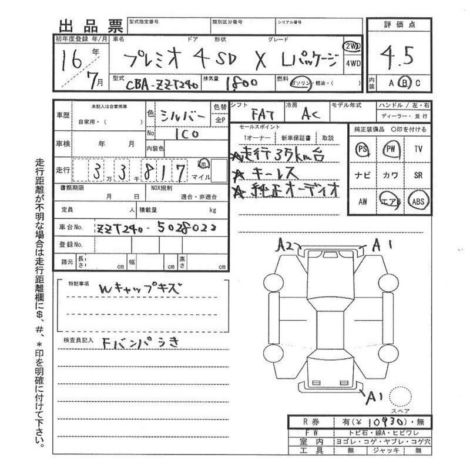 出品票
型式指定番号 類別区分番号 シリアル番号
初年度登録 年/月 車名 ドア 形状 グレード
16年 プレミオ 4SD X Lパッケージ 2WD
7月 4WD
型式 CBA-ZZT240 排気量 1800 燃料 ガソリン・軽油・( )
評価点
4.5
内装 A B C
車歴 未記入は自家用車 自家用・( ) 色 シルバー 色替 全P
車検 年 月 No 1C0
内装色
走行 3万3千817 マイル
書類期限 月 日 NOX規制 適合・非適合
定員 人 積載量 kg
車台No. ZZT240-5028022
登録No.
諸元 長さ cm 幅 cm 高さ cm
シフト FAT 冷房 AC モデル年式 ハンドル/左・右
ディーラー・並行
セールスポイント
1オーナー 新車保証書 取説
★走行35km台
★キーレス
★純正オーディオ
純正装備品 〇印を付ける
PS PW TV
ナビ カワ SR
AW エアB ABS
特記事項
Wキャップキズ
検査員記入
Fバンパうき
A2 A1
A1
スペア
R券 有(¥10930)・無
FW トビ石・線A・ヒビワレ
室内 ヨゴレ・コゲ・ヤブレ・コゲ穴
工具 無 ジャッキ 無
走行距離が不明な場合は走行距離欄に$、#、*印を明確に付けて下さい。